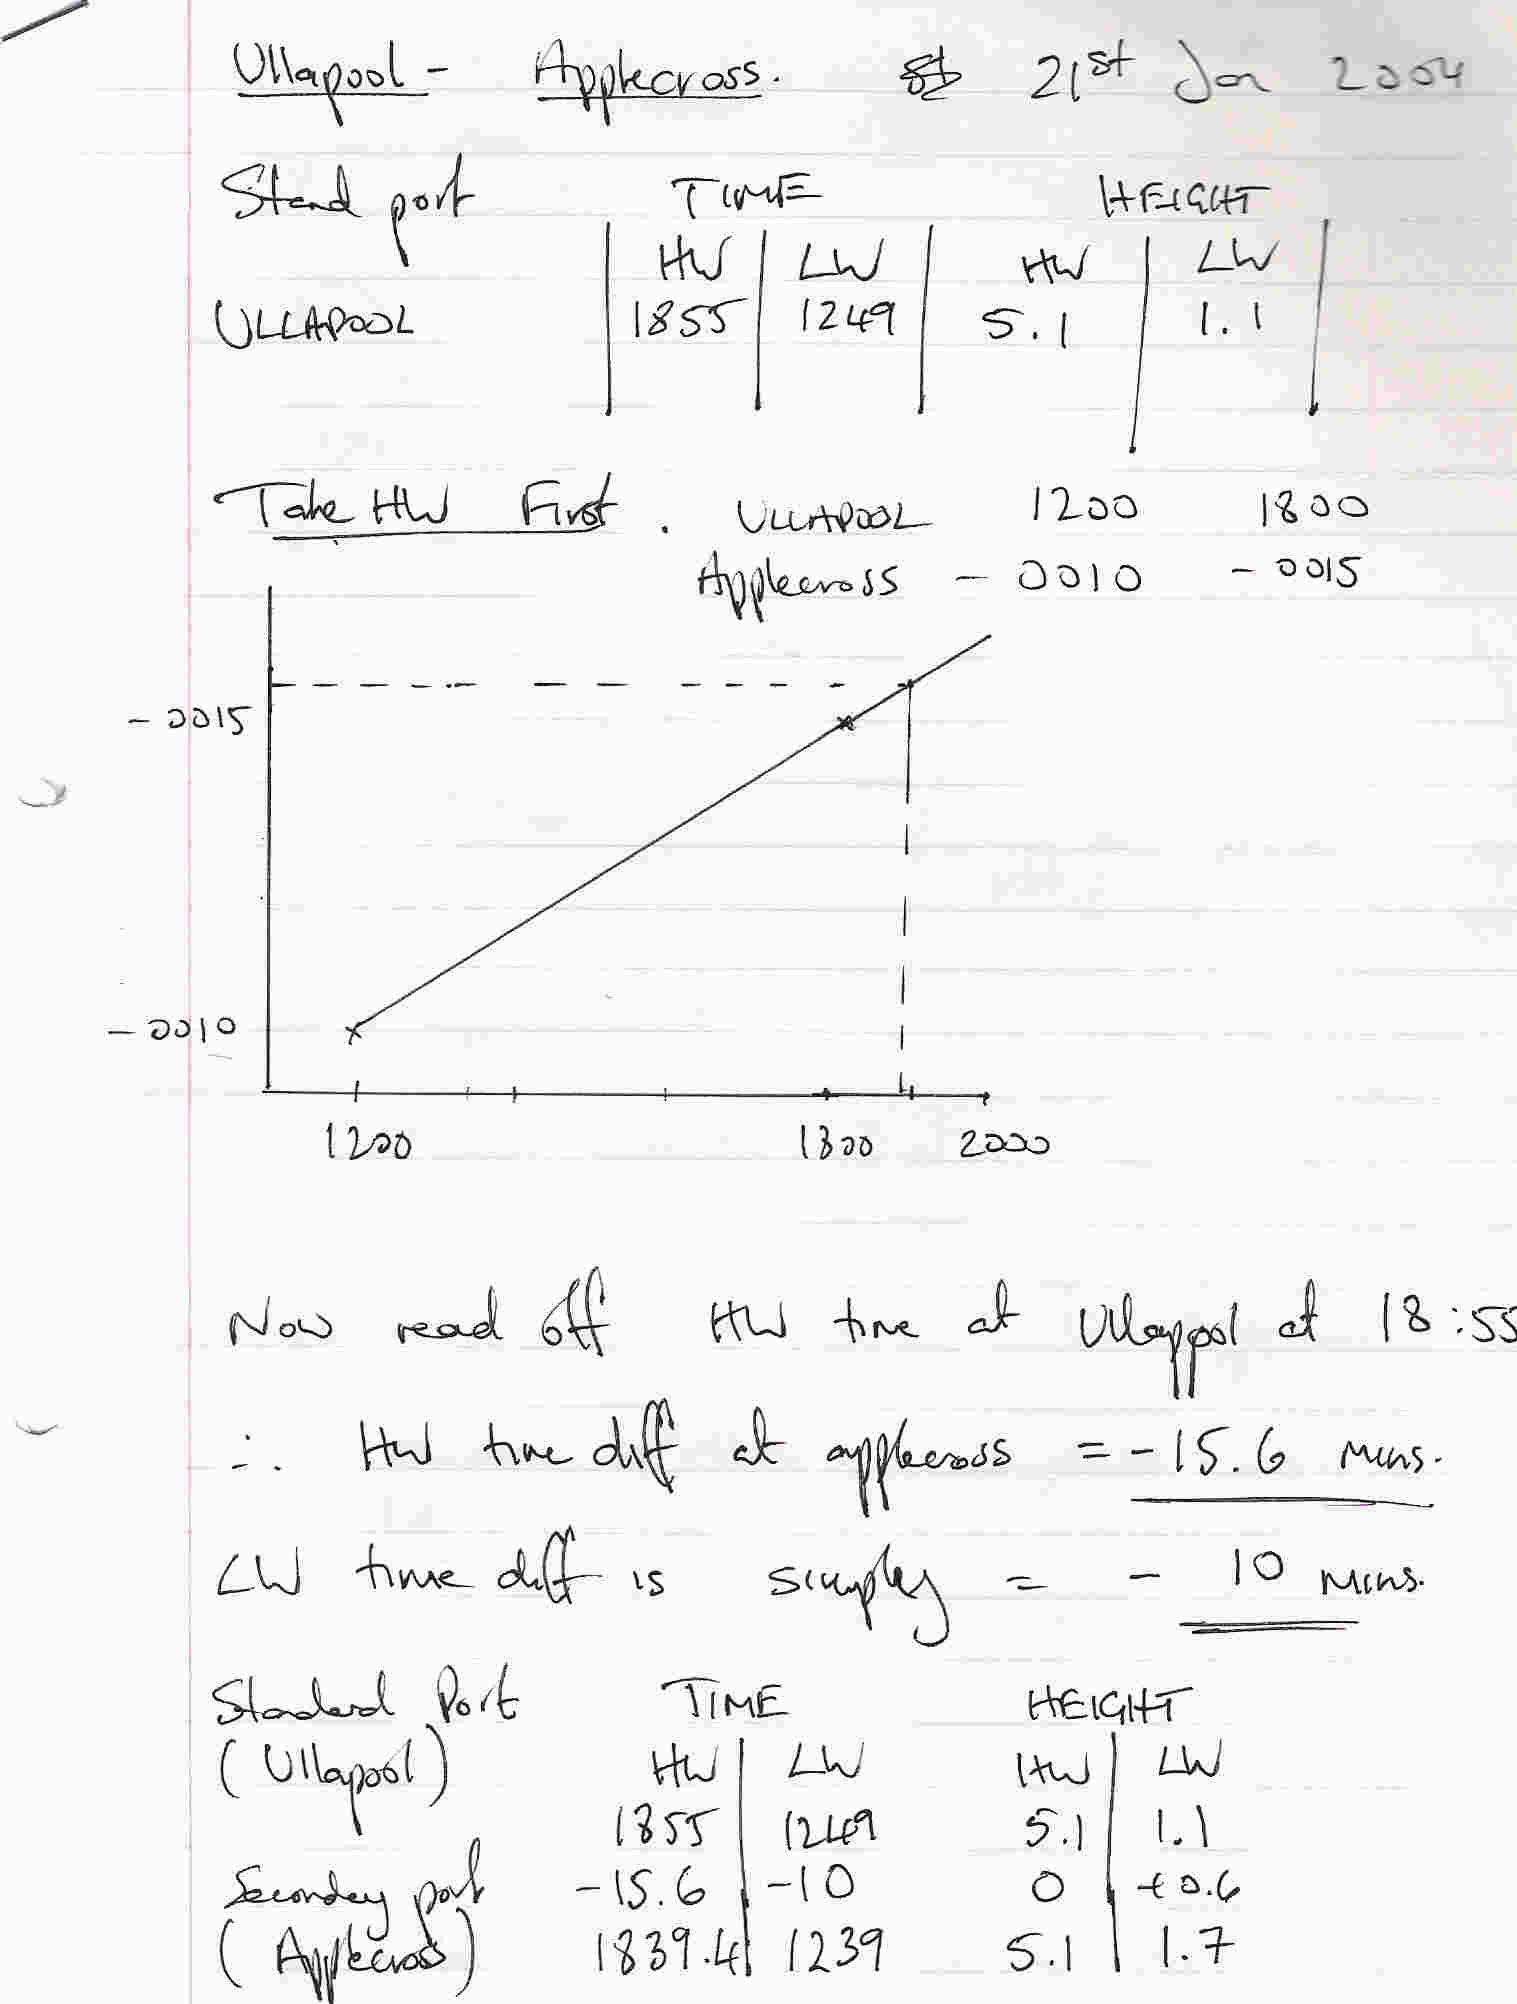 Ullapool - Applecross. 21st Jan 2004
Stand port TIME HEIGHT
HW LW HW LW
ULLAPOOL 1855 1249 5.1 1.1
Take HW First. ULLAPOOL 1200 1800
Applecross - 0010 - 0015
- 0015
- 0010
1200 1800 2000
Now read off HW time at Ullapool at 18:55
∴ HW time diff at applecross = -15.6 mins.
LW time diff is simply = - 10 mins.
Standard Port TIME HEIGHT
(Ullapool) HW LW HW LW
1855 1249 5.1 1.1
Secondary port -15.6 -10 0 +0.6
(Applecross) 1839.4 1239 5.1 1.7